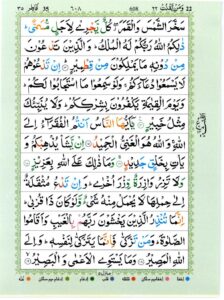 22 ومن يقنت ٢٢ 608 ٦٠٨ فاطر ٣٥ 35
سَخَّرَ الشَّمْسَ وَالْقَمَرَ كُلٌّ يَّجْرِيْ لِاَجَلٍ مُّسَمًّى
ذٰلِكُمُ اللّٰهُ رَبُّكُمْ لَهُ الْمُلْكُ وَالَّذِيْنَ تَدْعُوْنَ
مِنْ دُوْنِهٖ مَا يَمْلِكُوْنَ مِنْ قِطْمِيْرٍ اِنْ تَدْعُوْهُمْ
لَا يَسْمَعُوْا دُعَآءَكُمْ وَلَوْ سَمِعُوْا مَا اسْتَجَابُوْا
لَكُمْ وَيَوْمَ الْقِيٰمَةِ يَكْفُرُوْنَ بِشِرْكِكُمْ وَلَا يُنَبِّئُكَ
مِثْلُ خَبِيْرٍ يٰٓاَيُّهَا النَّاسُ اَنْتُمُ الْفُقَرَآءُ اِلَى
اللّٰهِ وَاللّٰهُ هُوَ الْغَنِيُّ الْحَمِيْدُ اِنْ يَّشَاْ يُذْهِبْكُمْ وَ
يَاْتِ بِخَلْقٍ جَدِيْدٍ وَمَا ذٰلِكَ عَلَى اللّٰهِ بِعَزِيْزٍ
وَلَا تَزِرُ وَازِرَةٌ وِّزْرَ اُخْرٰى وَاِنْ تَدْعُ مُثْقَلَةٌ
اِلٰى حِمْلِهَا لَا يُحْمَلْ مِنْهُ شَيْءٌ وَّلَوْ كَانَ ذَا قُرْبٰى
اِنَّمَا تُنْذِرُ الَّذِيْنَ يَخْشَوْنَ رَبَّهُمْ بِالْغَيْبِ وَاَقَامُوا
الصَّلٰوةَ وَمَنْ تَزَكّٰى فَاِنَّمَا يَتَزَكّٰى لِنَفْسِهٖ وَاِلَى
اللّٰهِ الْمَصِيْرُ وَمَا يَسْتَوِي الْاَعْمٰى وَالْبَصِيْرُ